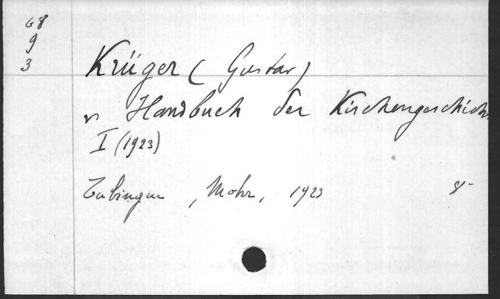 G8
9
3
Krüger (Gustav)
v Handbuch der Kirchengeschich
I (1923)
Tubingen, Mohr, 1923 8-